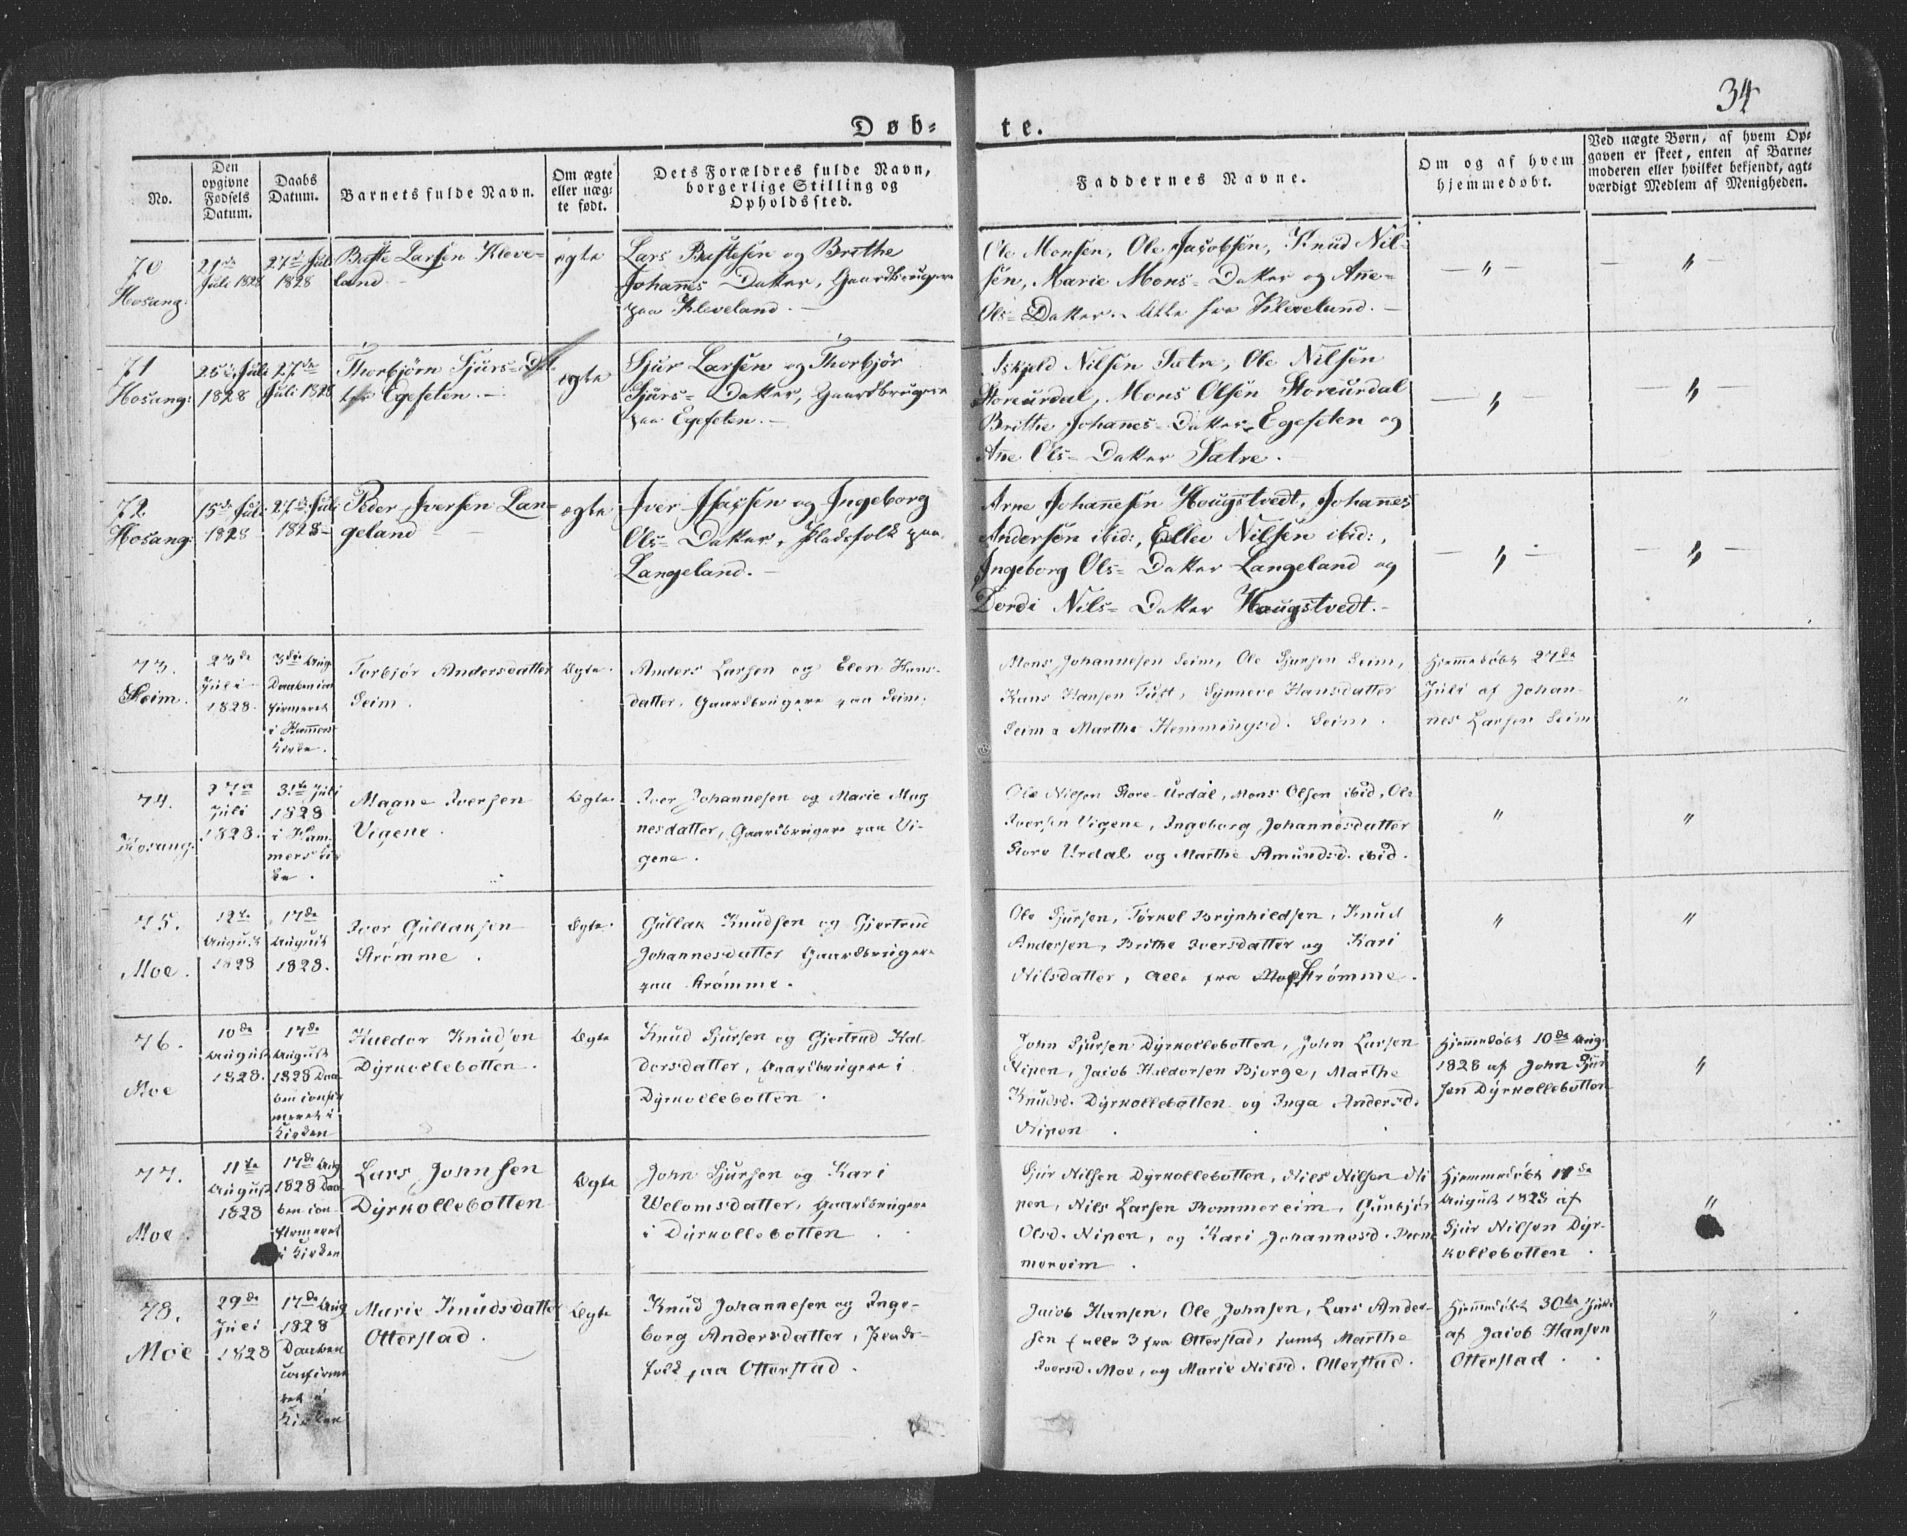 34
Døb-
te.
No.
Den
opgivne
Fødsels
Datum.
Daabs
Datum.
Barnets fulde Navn.
Om ægte
eller uæg-
te født.
Dets Forældres fulde Navn,
borgerlige Stilling og
Opholdssted.
Faddernes Navne.
Om og af hvem
hjemmedøbt.
Ved uægte Børn, af hvem Op-
gaven er skeet, enten af Barne-
moderen eller hvilket bekjendt, agt-
værdigt Medlem af Menigheden.
70
Hosang:
21de
Juli 1828
27de Juli
1828
Larsen Kleve-
land
ægte
Lars og Brithe
Johannes Datter, Gaardbrugere
paa Kleveland.
Ole Monsen, Ole Jacobsen, Knud Nil-
sen, Marie Mons- Datter og Ane
Ols- Datter. Alle fra Kleveland.
71
Hosang:
25de Juli
1828
27de
Juli 1828
Thorbjørn Sjurs- Dat-
ter Egeseten.
ægte
Sjur Larsen og Thorbjør
Sjurs- Datter, Gaardbrugere
paa Egeseten.
Askjeld Nilsen Sætre, Ole Nilsen
Storeurdal, Mons Olsen Storeurdal
Brithe Johanes- Datter Egeseten og
Ane Ols- Datter Sætre.
72
Hosang:
15de Juli
1828
27de Juli
1828
Peder Iversen Lan-
geland
ægte
Iver Isacsen og Ingeborg
Ols- Datter, Pladsfolk paa
Langeland.
Arne Johannesen Hougstvedt, Johannes
Andersen ibid:, Ellev Nilsen ibid:,
Ingeborg Ols- Datter Langeland og
Dordi Nils- Datter Haugstvedt.
73.
Seim.
23de
Juli
1828.
3die Aug.
Daaben con
firmeret
i Hammers
Kirke.
Torbjør Andersdatter
Seim.
Ægte.
Anders Larsen og Elen Hans-
datter, Gaardbrugere paa Seim.
Mons Johannesen Seim, Ole Sjursen Seim,
Hans Hansen Tust, Synneve Hansdatter
Seim & Marthe Hemmingsd. Seim.
Hjemmedøbt 27de
Juli af Johan-
nes Larsen Seim
74.
Hosang.
27de
Juli
1828.
31te Juli
1828
i Ham
mers Kir
ke.
Magne Iversen
Vigene.
Ægte.
Iver Johannesen og Marie Mag
nesdatter, Gaardbrugere paa Vi-
gene.
Ole Nilsen Store-Urdal, Mons Olsen ibid, Ole
Iversen Vigene, Ingeborg Johannesdatter
Store Urdal og Marthe Amundsd. ibid.
75.
Moe.
12te
August
1828
17de
August
1828.
Iver Gullaksen
Strømme.
Ægte.
Gullak Knudsen og Gjertrud
Johannesdatter Gaardbrugere
paa Strømme.
Ole Sjursen, Torkel Brynhildsen, Knud
Andersen, Brithe Iversdatter og Kari
Nilsdatter, alle fra Strømme.
76.
Moe
10de
August
1828.
17de
August
1828 Daa
ben confir
meret i
Kirken
Haldor Knudsen
Dyrkollebotten.
Ægte
Knud Sjursen og Gjertrud Hal-
dorsdatter, Gaardbrugere i
Dyrkollebotten.
John Sjursen Dyrkollebotten, John Larsen
Nipen, Jacob Haldorsen Bjorge, Marthe
Knudsd. Dyrkollebotten og Inga Andersd.
Nipen
Hjemmedøbt 10de Aug.
1828 af John Sjur
sen Dyrkollebotten
77.
Moe.
11te
August
1828
17de Aug
1828 Daa-
ben con
firmeret
i Kirken
Lars Johnsen
Dyrkollebotten
Ægte
John Sjursen og Kari
Welomsdatter, Gaardbrugere
i Dyrkollebotten
Sjur Nilsen Dyrkollebotten, Nils Nilsen Ni
pen, Nils Larsen Rommereim, Gunbjør
Olsd. Nipen, og Kari Johannesd. Rom
mereim.
Hjemmedøbt 11de
August 1828 af
Sjur Nilsen Dyr-
kollebotten.
78.
Moe
29de
Juli
1828
17de Aug
1828
Daaben
confirme
ret i
Kirken
Marie Knudsdatter
Otterstad.
Ægte
Knud Johannesen og Inge-
borg Andersdatter, Plads-
folk paa Otterstad.
Jacob Hansen, Ole Johnsen, Lars Ander-
sen (alle 3 fra Otterstad, samt Marthe
Iversd. Moe, og Marie Nilsd. Otterstad.
Hjemmedøbt 30te Juli
af Jacob Hansen
Otterstad.